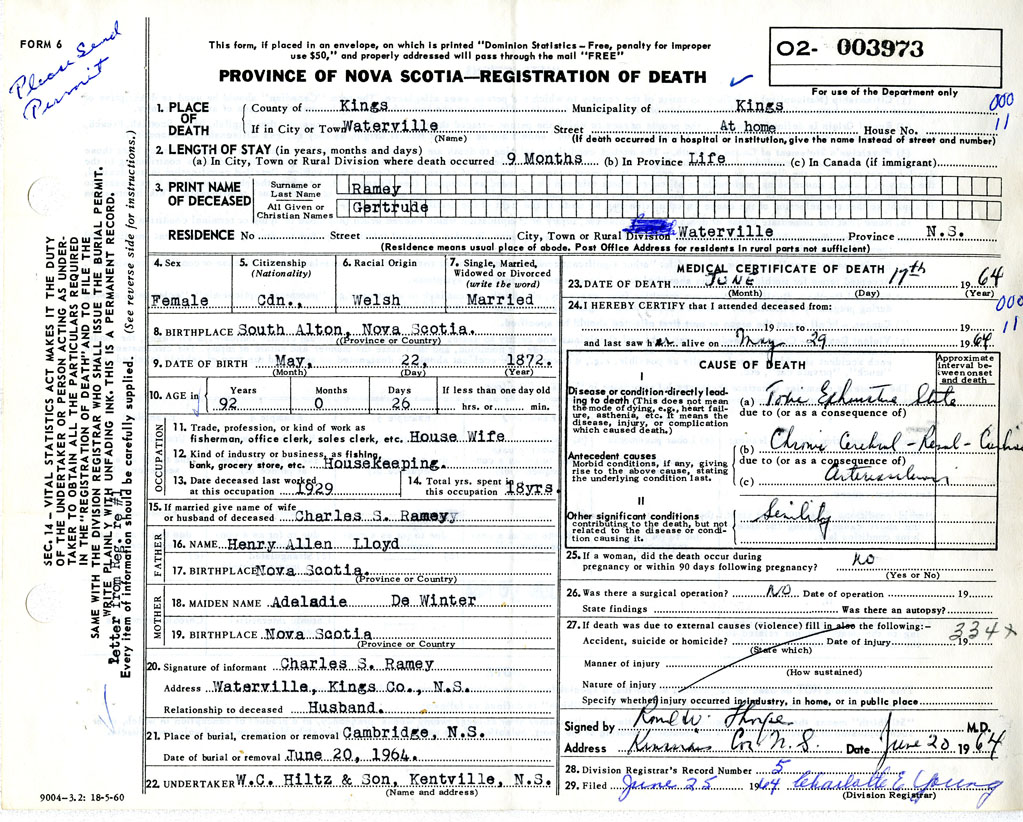 FORM 6
Please Send Permit
This form, if placed in an envelope, on which is printed "Dominion Statistics – Free, penalty for improper
use $50," and properly addressed will pass through the mail "FREE"
PROVINCE OF NOVA SCOTIA—REGISTRATION OF DEATH ✓
02- 003973
For use of the Department only
000
11
SEC. 14 – VITAL STATISTICS ACT MAKES IT THE DUTY
OF THE UNDERTAKER OR PERSON ACTING AS UNDER-
TAKER TO OBTAIN ALL THE PARTICULARS REQUIRED
IN THE "REGISTRATION OF DEATH" AND TO FILE THE
SAME WITH THE DIVISION REGISTRAR WHO SHALL ISSUE THE BURIAL PERMIT.
WRITE PLAINLY WITH UNFADING INK. THIS IS A PERMANENT RECORD.
letter from Reg. re #1
Every item of information should be carefully supplied. (See reverse side for instructions.)
1. PLACE OF DEATH
County of Kings Municipality of Kings
If in City or Town Waterville Street At home House No.
(Name) (If death occurred in a hospital or institution, give the name instead of street and number)
2. LENGTH OF STAY (in years, months and days)
(a) In City, Town or Rural Division where death occurred 9 Months (b) In Province Life (c) In Canada (if immigrant)
3. PRINT NAME OF DECEASED
Surname or Last Name Ramey
All Given or Christian Names Gertrude
RESIDENCE No Street City, Town or Rural Division Waterville Province N.S.
(Residence means usual place of abode. Post Office Address for residents in rural parts not sufficient)
4. Sex
Female
5. Citizenship
(Nationality)
Cdn.,
6. Racial Origin
Welsh
7. Single, Married,
Widowed or Divorced
(write the word)
Married
8. BIRTHPLACE South Alton, Nova Scotia.
(Province or Country)
9. DATE OF BIRTH May, 22, 1872.
(Month) (Day) (Year)
10. AGE in
Years Months Days If less than one day old
92 0 26 hrs. or min.
OCCUPATION
11. Trade, profession, or kind of work as
fisherman, office clerk, sales clerk, etc. House Wife
12. Kind of industry or business, as fishing,
bank, grocery store, etc. Housekeeping.
13. Date deceased last worked
at this occupation 1929
14. Total yrs. spent in
this occupation 18yrs.
15. If married give name of wife
or husband of deceased Charles S. Ramey
FATHER
16. NAME Henry Allen Lloyd
17. BIRTHPLACE Nova Scotia.
(Province or Country)
MOTHER
18. MAIDEN NAME Adeladie De Winter
19. BIRTHPLACE Nova Scotia
(Province or Country
20. Signature of informant Charles S. Ramey
Address Waterville, Kings Co., N.S.
Relationship to deceased Husband.
21. Place of burial, cremation or removal Cambridge, N.S.
Date of burial or removal June 20, 1964.
22. UNDERTAKER W.C. Hiltz & Son, Kentville, N.S.
(Name and address)
9004-3.2: 18-5-60
MEDICAL CERTIFICATE OF DEATH
23. DATE OF DEATH JUNE 17th 1964
(Month) (Day) (Year)
24. I HEREBY CERTIFY that I attended deceased from:
19 to 19
and last saw her alive on May 29 1964
000
11
CAUSE OF DEATH
Approximate
interval be-
tween onset
and death
I
Disease or condition directly lead-
ing to death (This does not mean
the mode of dying, e.g., heart fail-
ure, asthenia, etc. It means the
disease, injury, or complication
which caused death.)
(a) Toxi Exhaustive State
due to (or as a consequence of)
Antecedent causes
Morbid conditions, if any, giving
rise to the above cause, stating
the underlying condition last.
(b) Chronic Cerebral - Renal -
due to (or as a consequence of)
(c) Arteriosclerosis
II
Other significant conditions
contributing to the death, but not
related to the disease or condi-
tion causing it.
Senility
25. If a woman, did the death occur during
pregnancy or within 90 days following pregnancy? NO
(Yes or No)
26. Was there a surgical operation? NO Date of operation 19
State findings Was there an autopsy?
27. If death was due to external causes (violence) fill in also the following:–
334x
Accident, suicide or homicide? Date of injury 19
(State which)
Manner of injury
(How sustained)
Nature of injury
Specify whether injury occurred in industry, in home, or in public place
Signed by W. Thorpe M.D.
Address Co. N.S. Date June 20 1964
28. Division Registrar's Record Number 5
29. Filed June 25 1964 Charlotte E. Young
(Division Registrar)